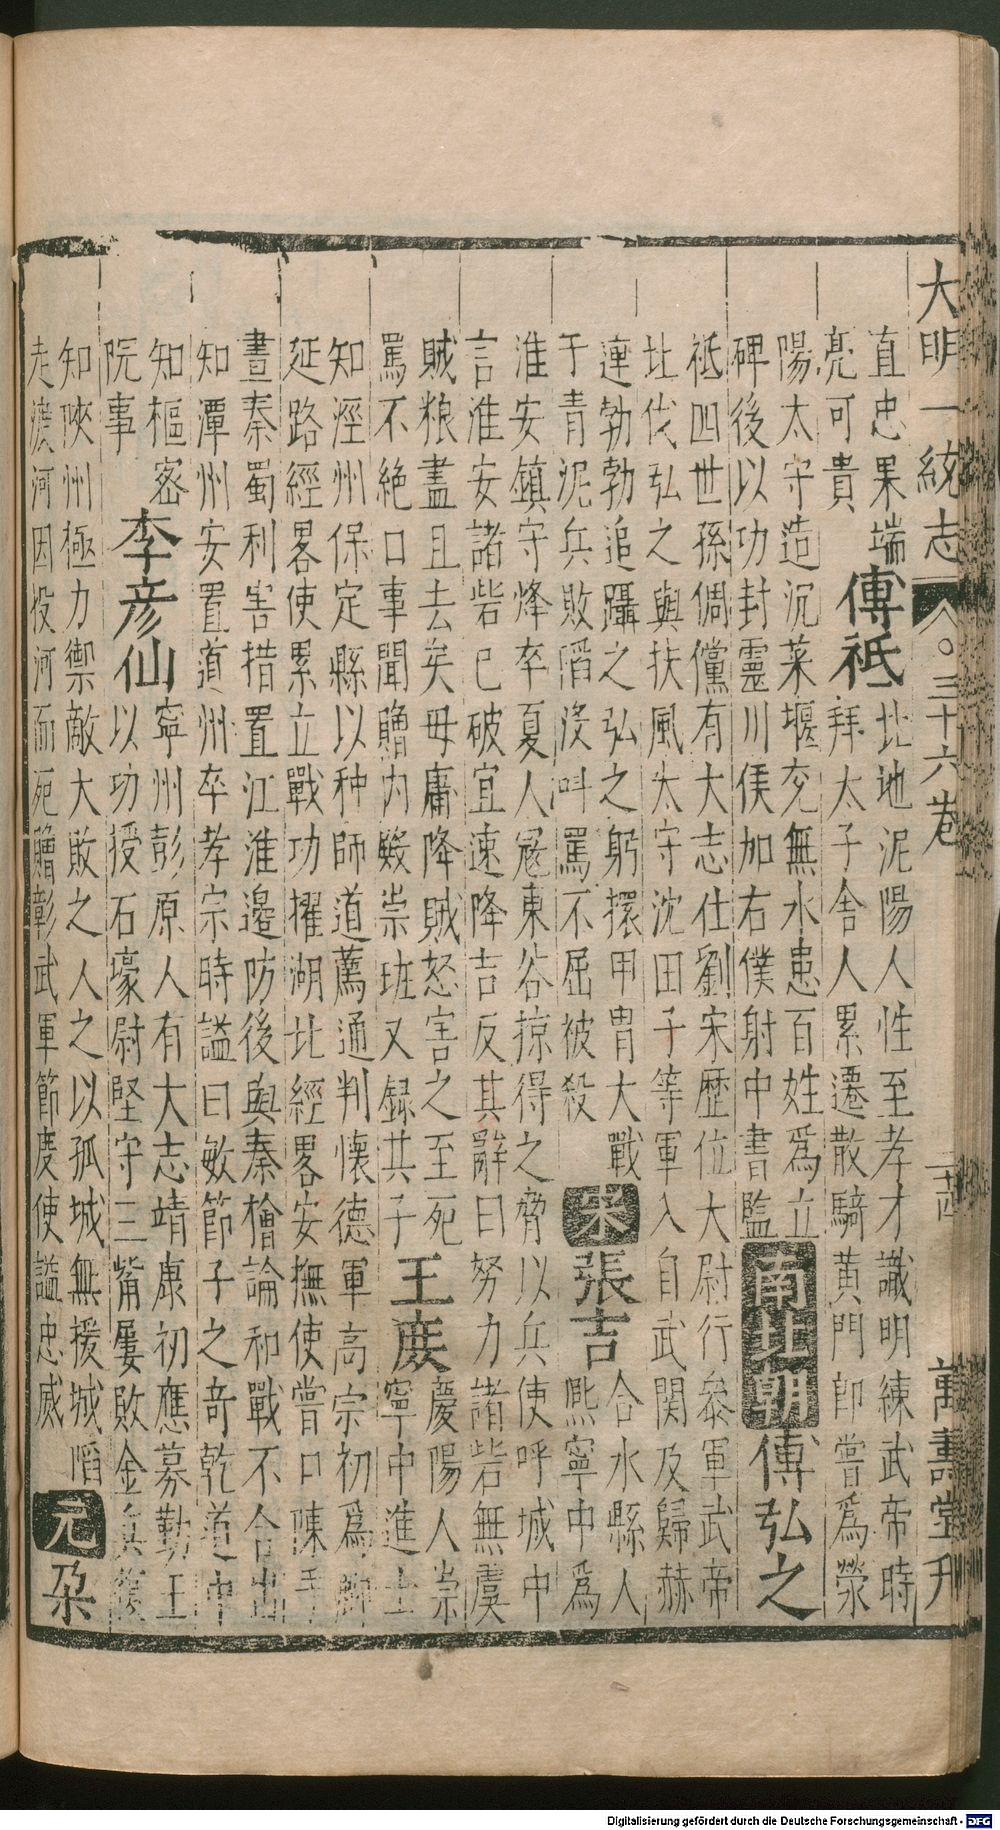 大明一統志 三十六卷 十四 萬壽堂刋
直忠果端傅祗北地泥陽人性至孝才識明練武帝時
亮可貴拜太子舍人累遷散騎黃門郎嘗爲滎
陽太守造沉萊堰兖無水患百姓爲立
碑後以功封靈川侯加右僕射中書監南北朝傅弘之
祗四世孫倜儻有大志仕劉宋歷位大尉行叅軍武帝
北伐弘之與扶風太守沈田子等軍入自武關及歸赫
連勃勃追躡之弘之躬擐甲冑大戰
于青泥兵敗䧟沒叫罵不屈被殺宋張吉合水縣人
熙寧中爲
淮安鎮守烽卒夏人冦東谷掠得之脅以兵使呼城中
言淮安諸砦已破宜速降吉反其辭曰努力諸砦無虞
賊粮盡且去矣毋庸降賊怒害之至死
罵不絶口事聞贈内殿崇班又録其子王庻慶陽人崇
寧中進士
知涇州保定縣以种師道薦通判懷德軍高宗初爲鄜
延路經畧使累立戰功擢湖北經畧安撫使嘗口陳手
畫秦蜀利害措置江淮邉防後與秦檜論和戰不合出
知潭州安置道州卒孝宗時謚曰敏節子之竒乾道中
知樞宻
院事李彦仙寧州彭原人有大志靖康初應募勤王
以功授石壕尉堅守三觜屢敗金兵復
知陜州極力禦敵大敗之人之以孤城無援城䧟
走渡河因投河而死贈彰武軍節度使謚忠威元朶
Digitalisierung gefördert durch die Deutsche Forschungsgemeinschaft - DFG